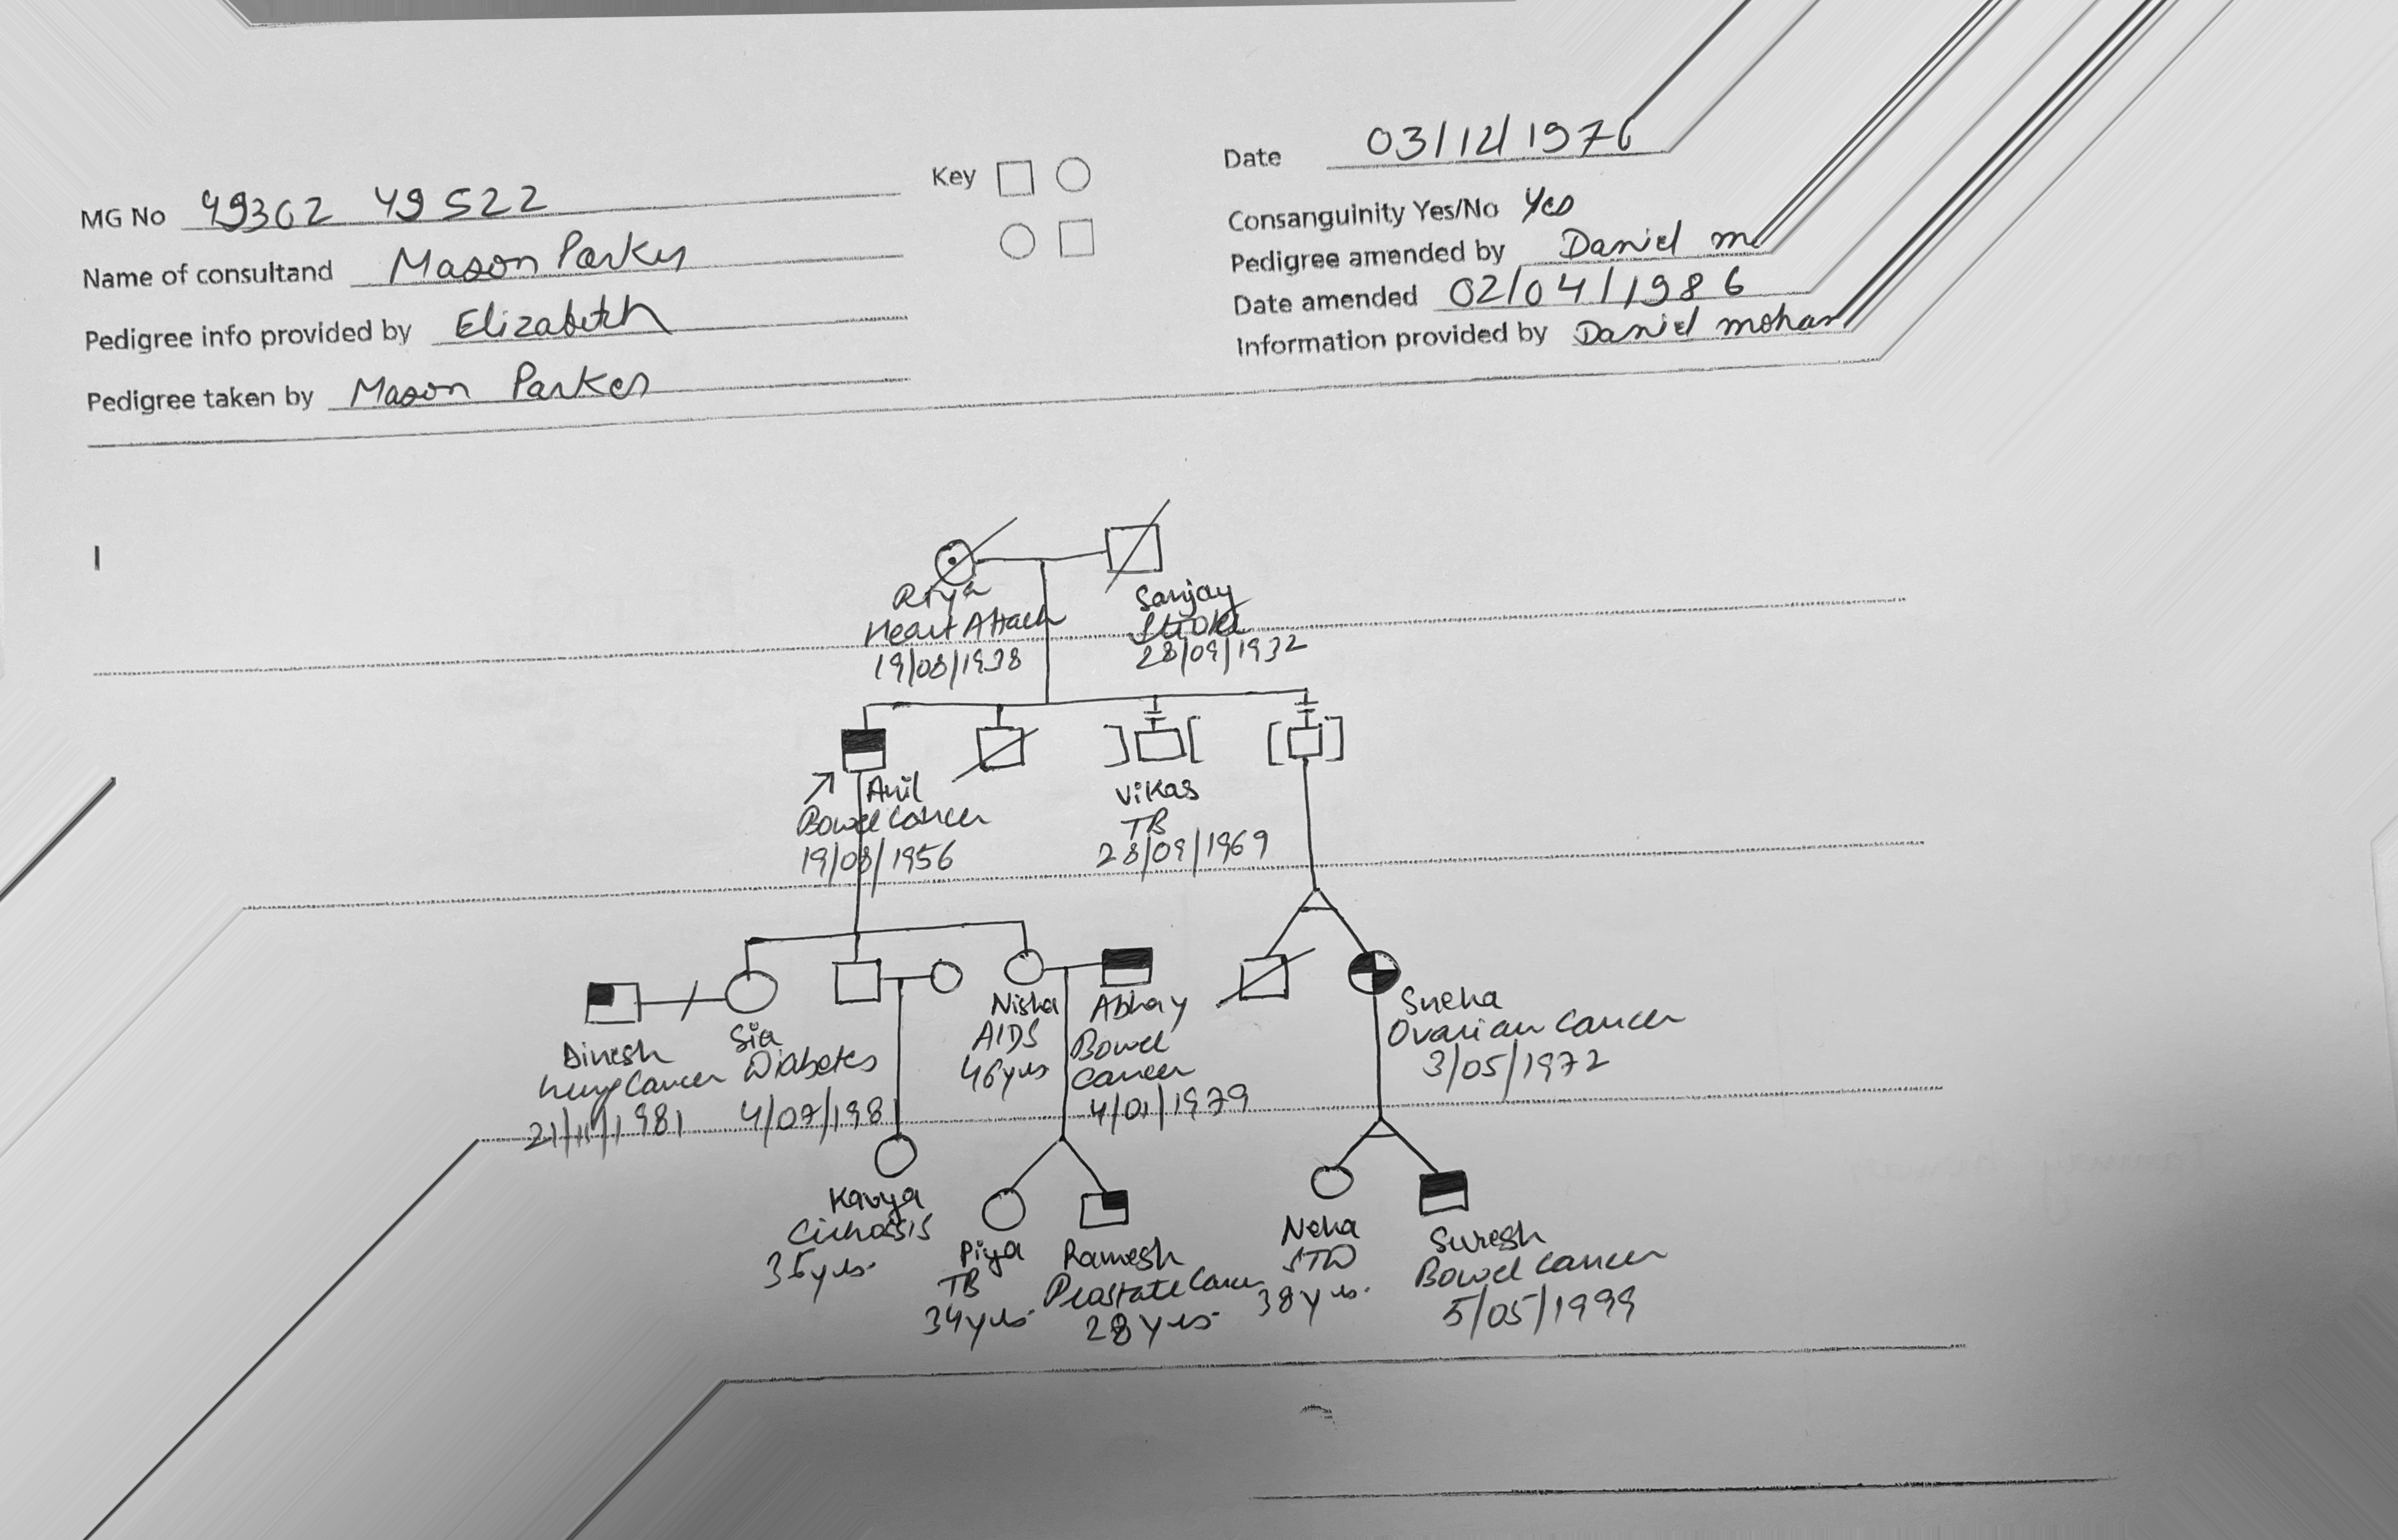 MG No 49302 49522
Name of consultand Mason Parker
Pedigree info provided by Elizabeth
Pedigree taken by Mason Parker
Key
Date 03/12/1976
Consanguinity Yes/No Yes
Pedigree amended by Daniel m
Date amended 02/04/1986
Information provided by Daniel mohan
I
Heart Attack
19/08/1938
Sanjay
Stroke
28/09/1932
Anil
Bowel Cancer
19/08/1956
Vikas
TB
28/09/1969
Dinesh
Lung Cancer
21/11/1981
Sia
Diabetes
4/07/1981
Nisha
AIDS
46 yrs
Abhay
Bowel
Cancer
4/01/1979
Sneha
Ovarian Cancer
3/05/1972
Kavya
Cirhosis
35 yrs.
Piya
TB
34 yrs.
Ramesh
Prostate Cancer
28 yrs.
Neha
STD
38 yrs.
Suresh
Bowel Cancer
5/05/1999